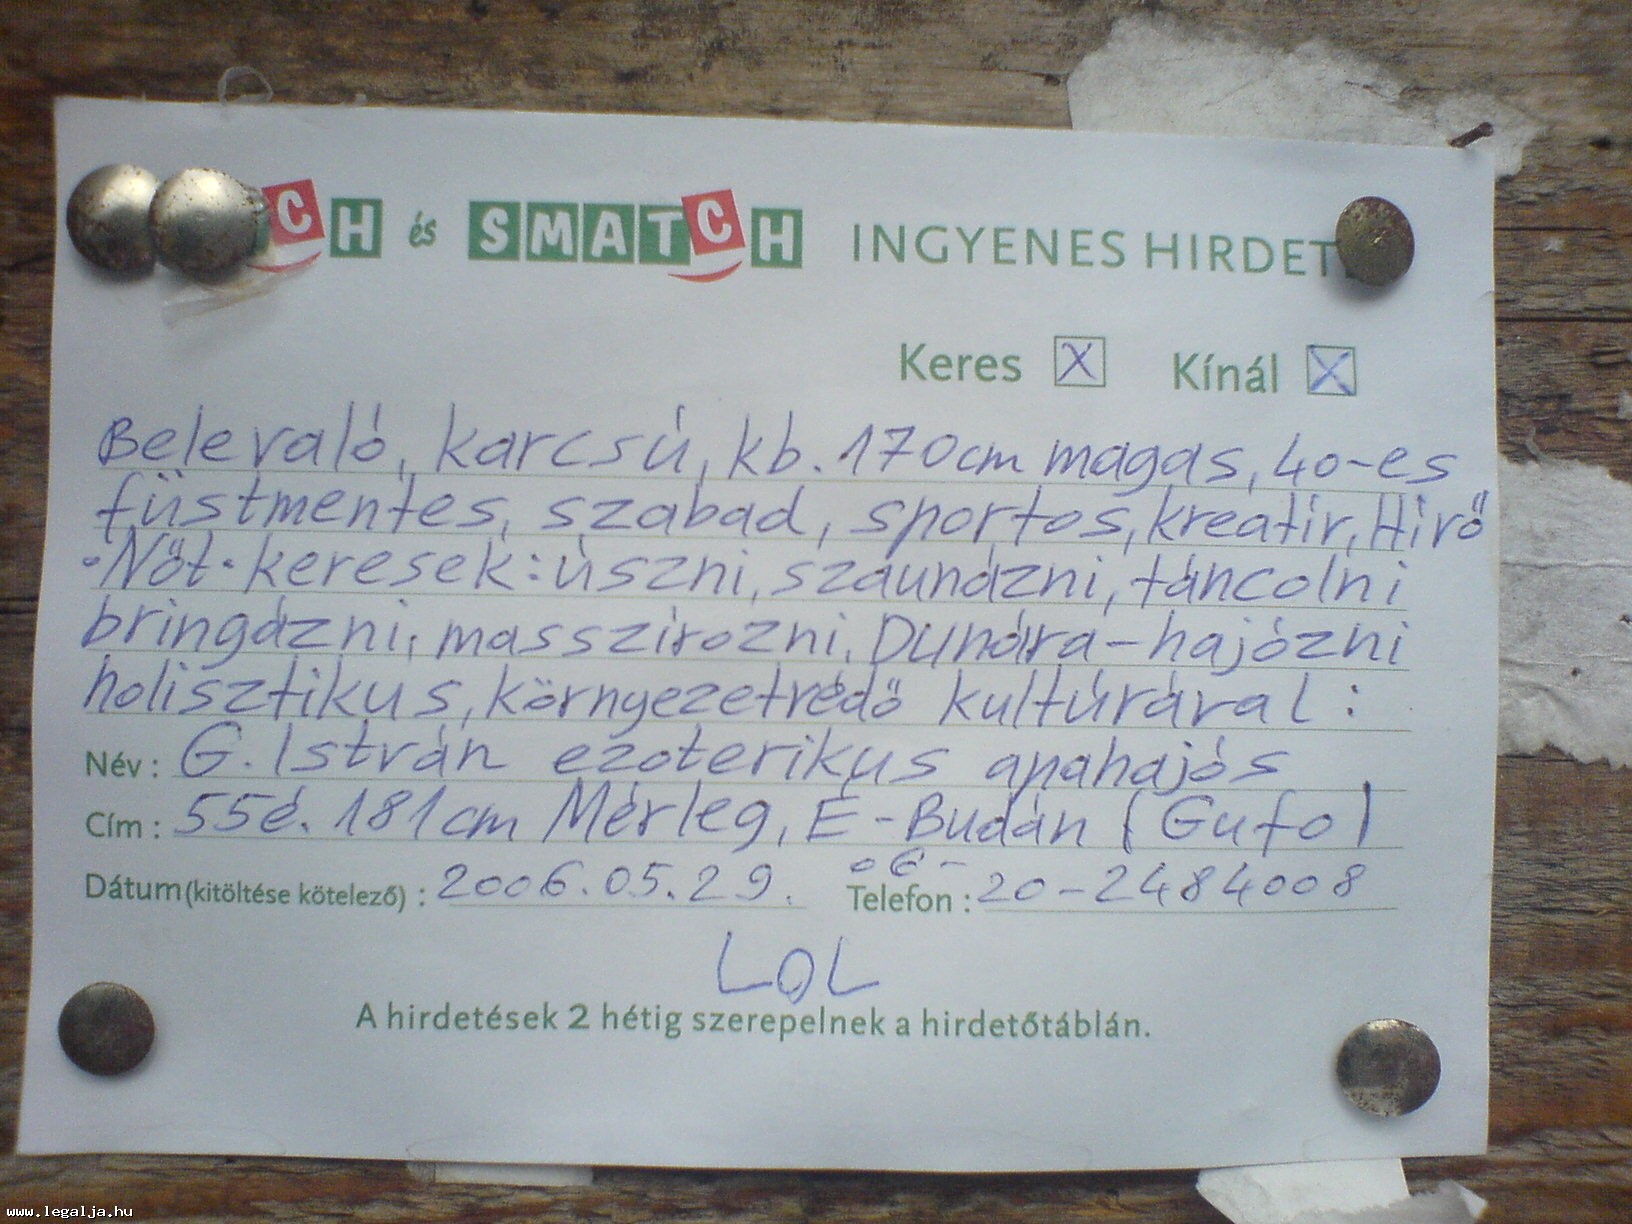 CH és SMATCH INGYENES HIRDET
Keres X Kínál X
Belevaló, karcsú, kb. 170cm magas, 40-es
füstmentes, szabad, sportos, kreatív, Hívő
•Nőt• keresek: úszni, szaunázni, táncolni
bringázni, masszírozni, Dunára-hajózni
holisztikus, környezetvédő kultúrával:
Név: G. István ezoterikus apahajós
Cím: 55é. 181cm Mérleg, É-Budán (Gufo)
Dátum(kitöltése kötelező): 2006.05.29. Telefon: 06-20-2484008
LOL
A hirdetések 2 hétig szerepelnek a hirdetőtáblán.
www.legalja.hu